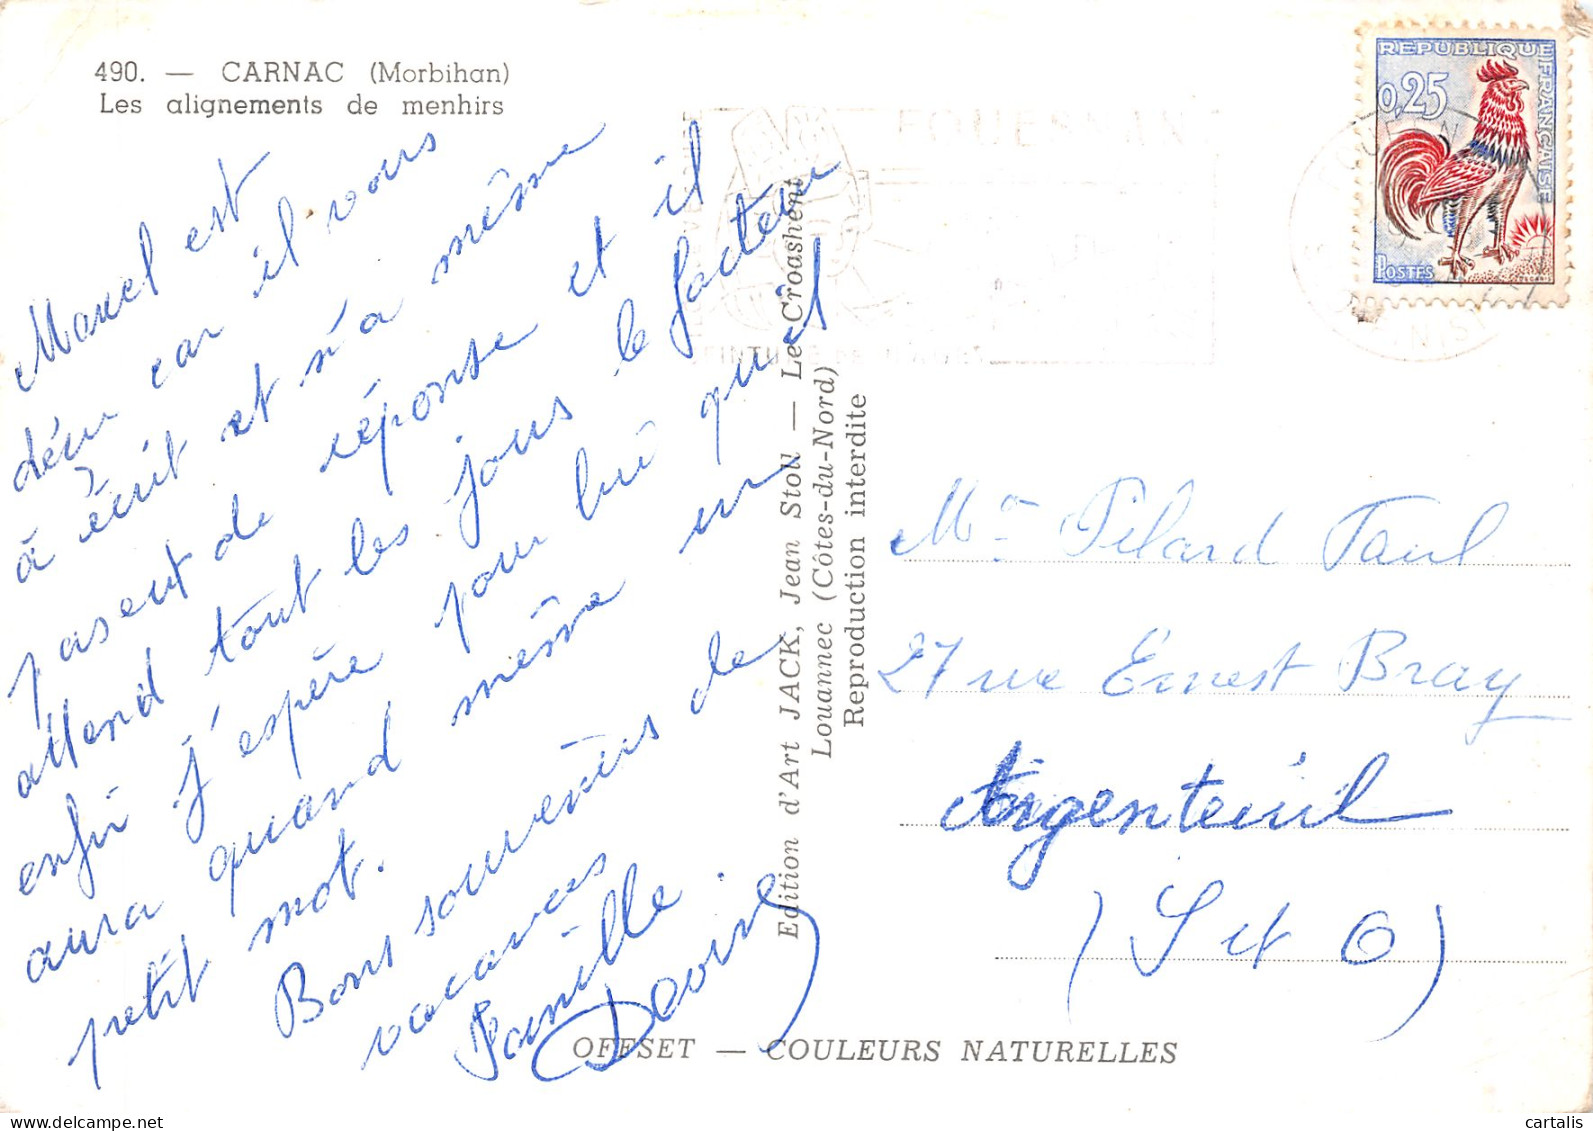 490. — CARNAC (Morbihan)
Les alignements de menhirs
Marcel est
déçu car il vous
à écrit et n'a même
pas eut de réponse et il
attend tout les jours le facteur
enfin j'espère pour lui qu'il
aura quand même un
petit mot.
Bons souvenirs de
vacances
Famille
Edition d'Art JACK, Jean Stoll — Le Croashent
Louannec (Côtes-du-Nord)
Reproduction interdite
FOUESNAN
REPUBLIQUE FRANÇAISE
0,25
POSTES
Mr Pilard Paul
27 rue Ernest Bray
Argenteuil
(S et O)
OFFSET — COULEURS NATURELLES
cartalis